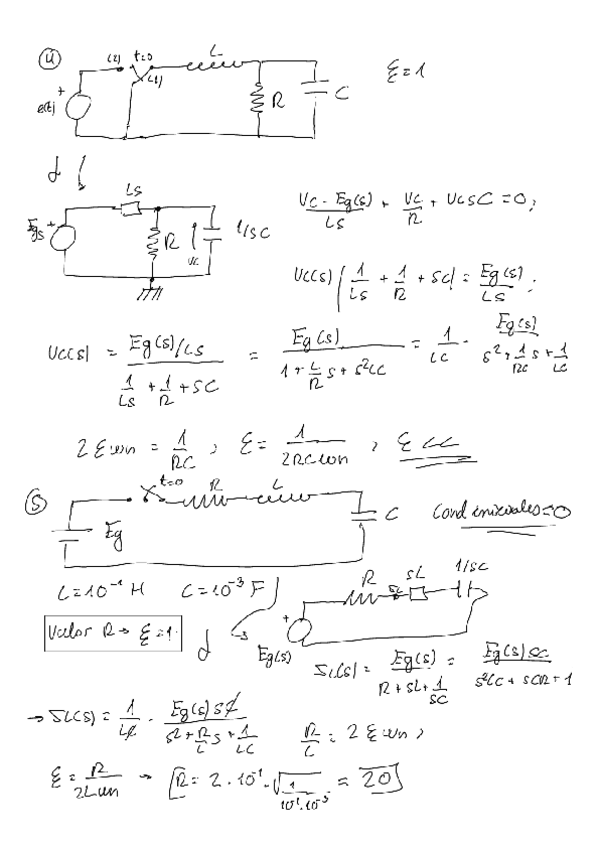 ④ (2) t=0 L
(1)
+ e(t) R C ξ=1
L
Ls
Eg s + R Vc 1/sC
(Vc - Eg(s))/Ls + Vc/R + VcsC = 0;
Vc(s) ( 1/Ls + 1/R + sC ) = Eg(s)/Ls ;
Vc(s) = (Eg(s)/Ls)/(1/Ls + 1/R + sC) = Eg(s)/(1 + L/R s + s²LC) = 1/LC · Eg(s)/(s² + 1/RC s + 1/LC)
2ξωn = 1/RC ; ξ = 1/(2RCωn) ;
⑤ t=0 R L
Eg C Cond iniciales=0
L=10⁻¹ H C=10⁻³ F
R sL 1/sC
Valor R → ξ=1.
+ Eg(s)
(s) = Eg(s)/(R + sL + 1/sC) = Eg(s)sC/(s²LC + sCR + 1)
→ (s) = 1/LC · Eg(s)sC/(s² + R/L s + 1/LC) R/L = 2ξωn ;
ξ = R/(2Lωn) → R = 2·10⁻¹·√(1/(10⁻¹·10⁻³)) = 20